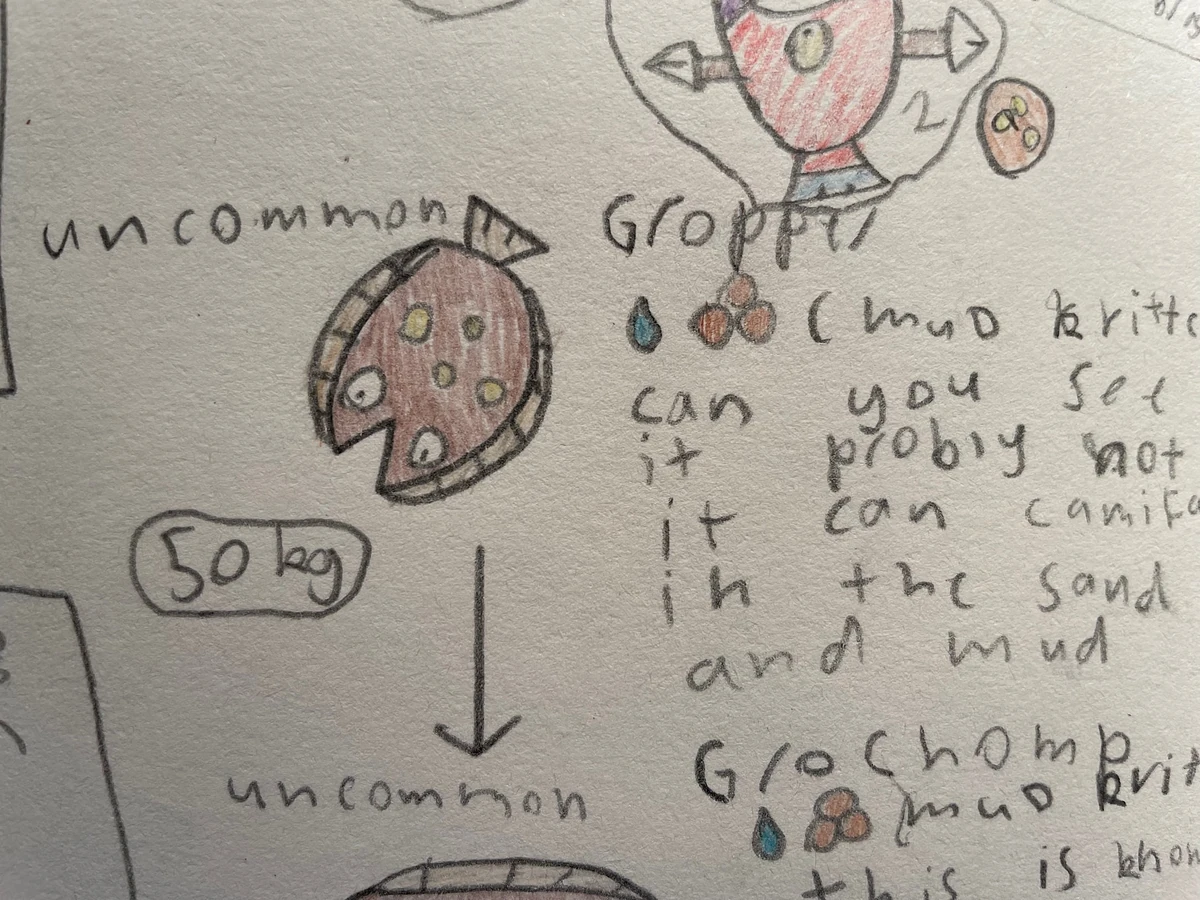 2
uncommon
Gropper
(muD kritte
can you see
it probly not
it can camifa
in the sand
and mud
50 kg
uncommon
Grochomp
muD krit
this is know